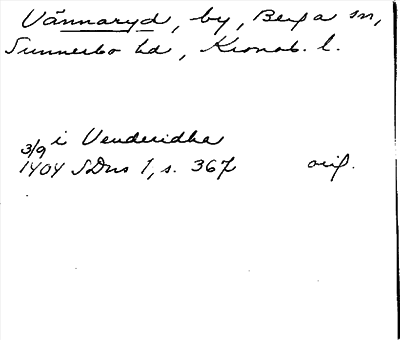 Vännaryd, by, Berga sn,
Sunnerbo hd, Kronob. l.
3/9 i Venderidha
1404 SDns 1, s. 367 orig.